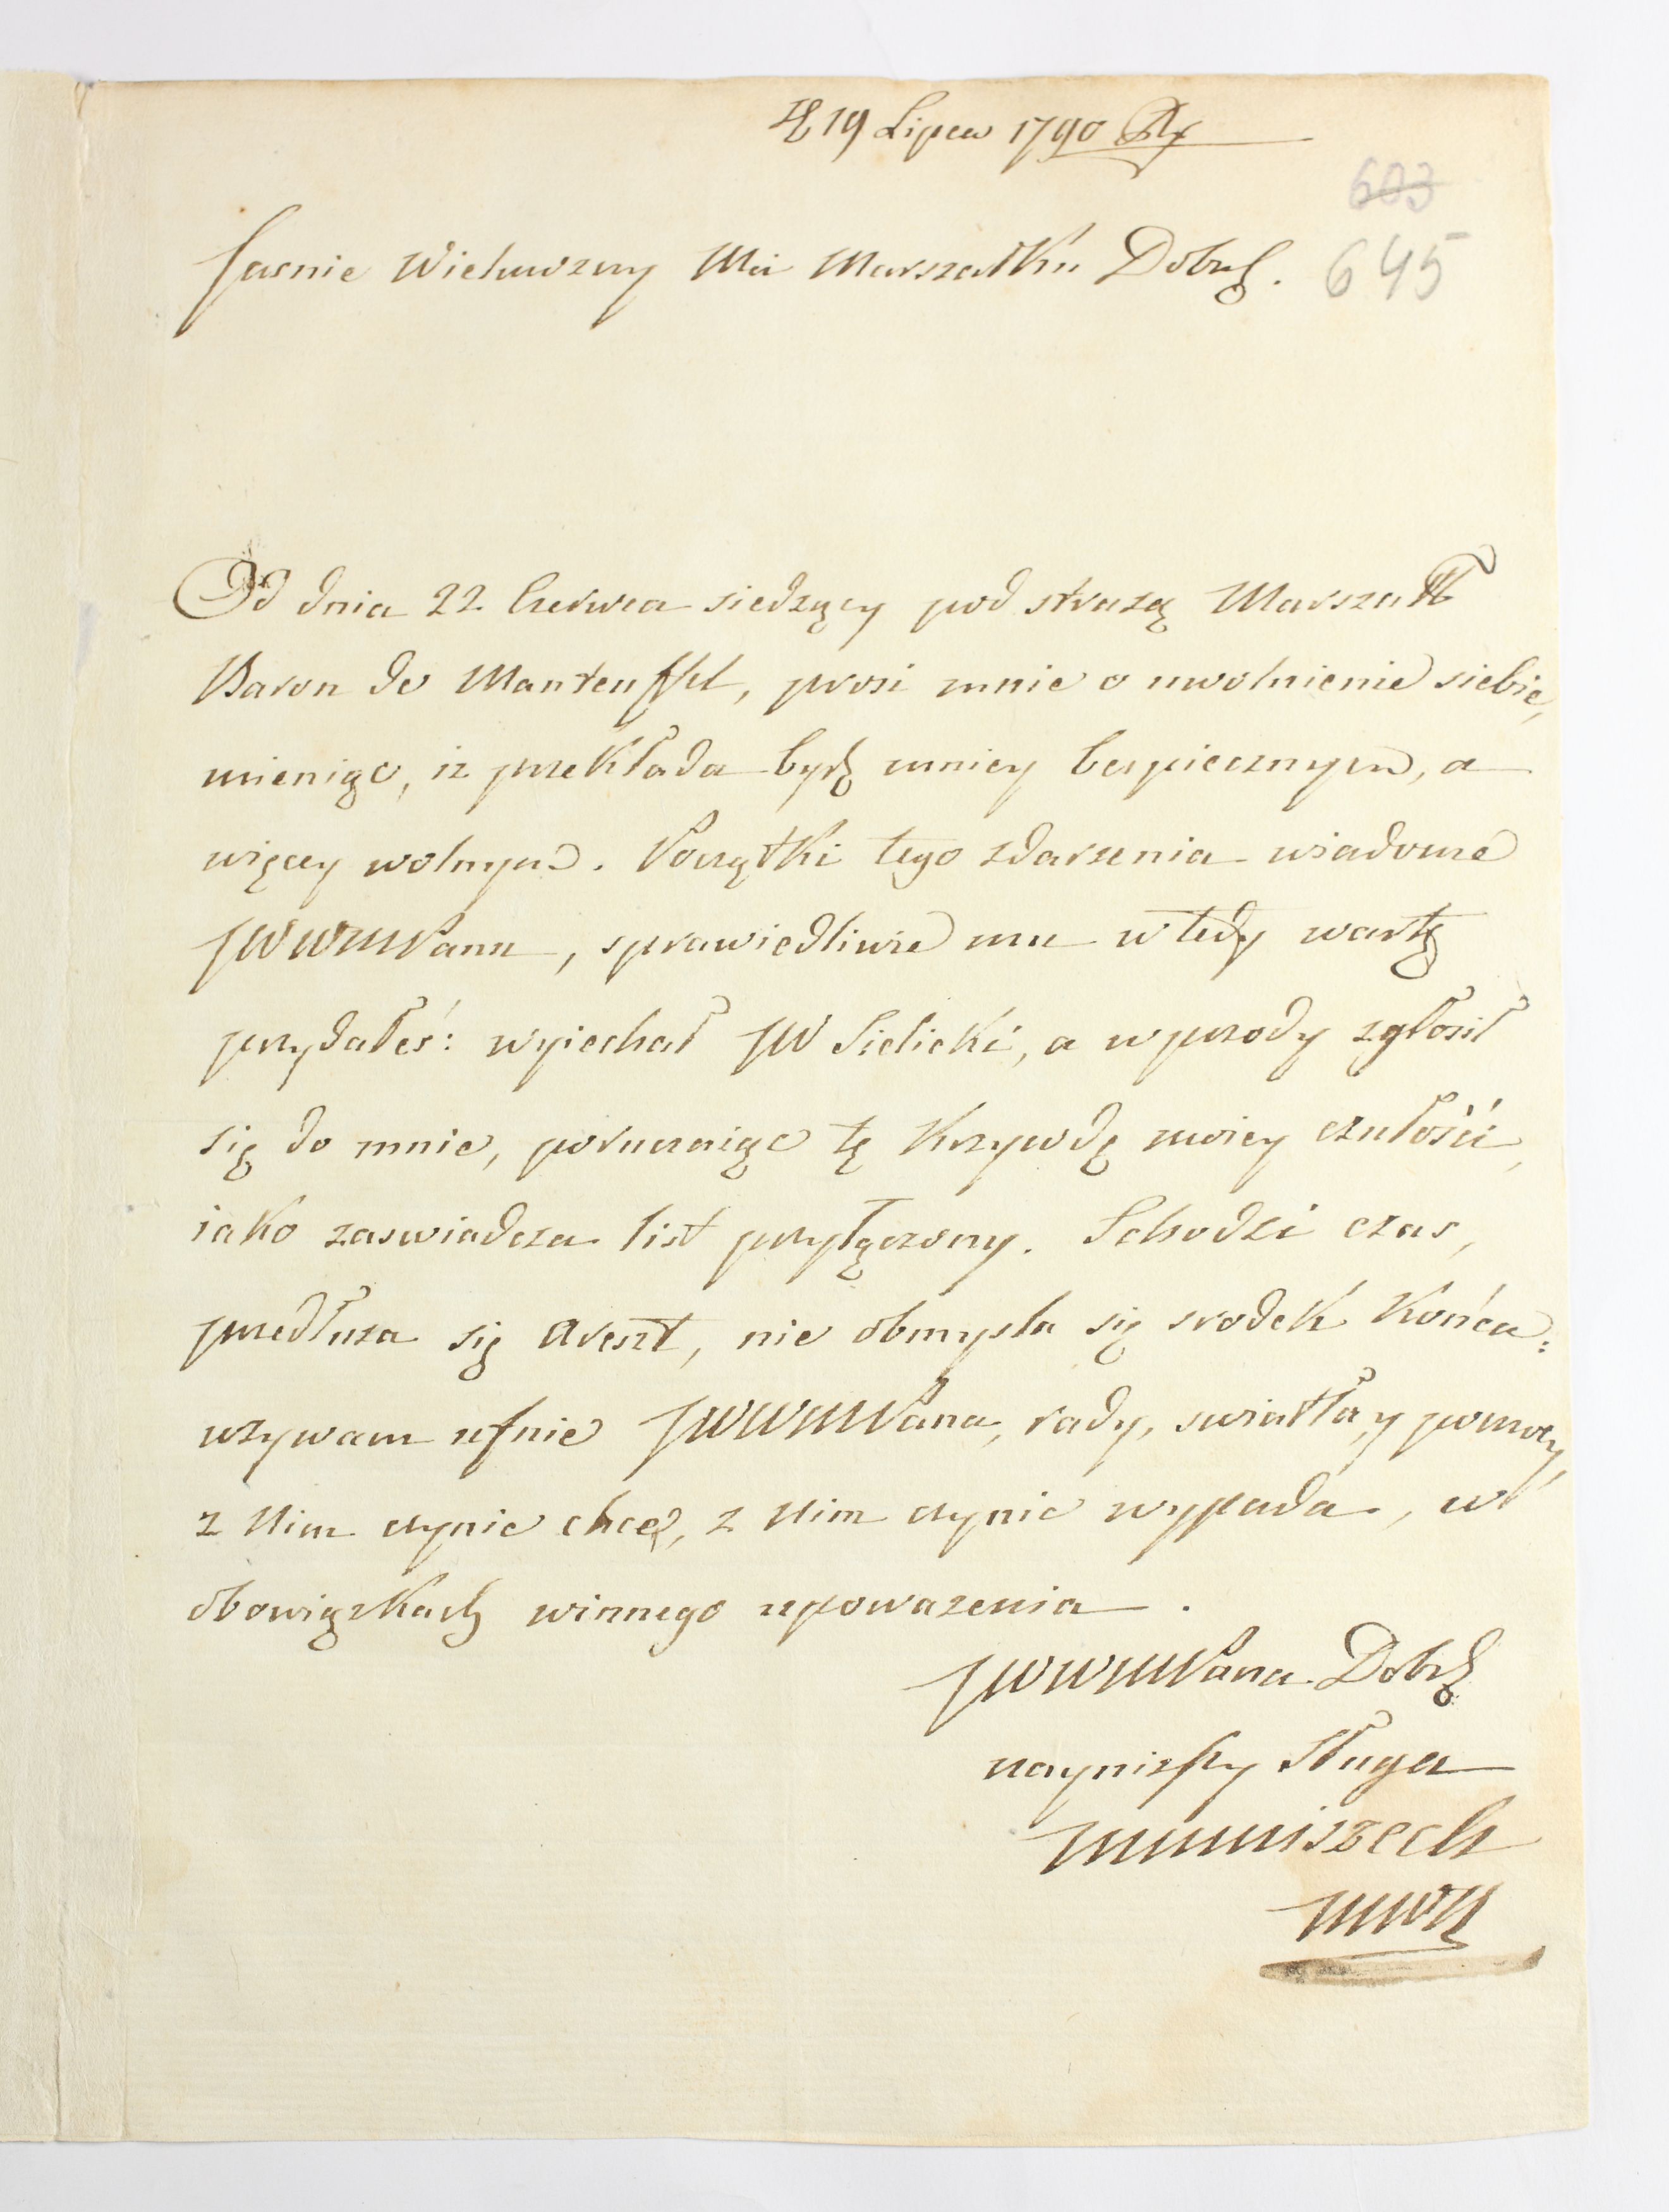 19 Lipca 1790
603
Jasnie Wielmozny Mci Marszałku Dobrz.
645
Od dnia 22 Czerwca siedzący pod strazą Marszałk
Baron de Manteuffel, prosi mnie o uwolnienie siebie,
mieniąc, iz przekłada bydź mniey bespiecznym, a
więcey wolnym. Początki tego zdarzenia wiadome
JWWMPanu, sprawiedliwie mu wtedy wartę
przydałeś: wyiechał JW Sielicki, a wprzody zgłosił
się do mnie, poruczaiąc tę Krzywdę moiey czułości,
iako zaswiadcza list przyłączony. Schodzi czas,
przedłuza się Areszt, nie obmysla się srodek Końca:
wzywam ufnie JWWMPana, rady, swiatła, y pomocy,
z Nim czynic chcę, z Nim czynic wypada, w
obowiązkach winnego upowazenia.
JWWMPana Dobrz
naynizszy Sługa
Mmniszech
MWK